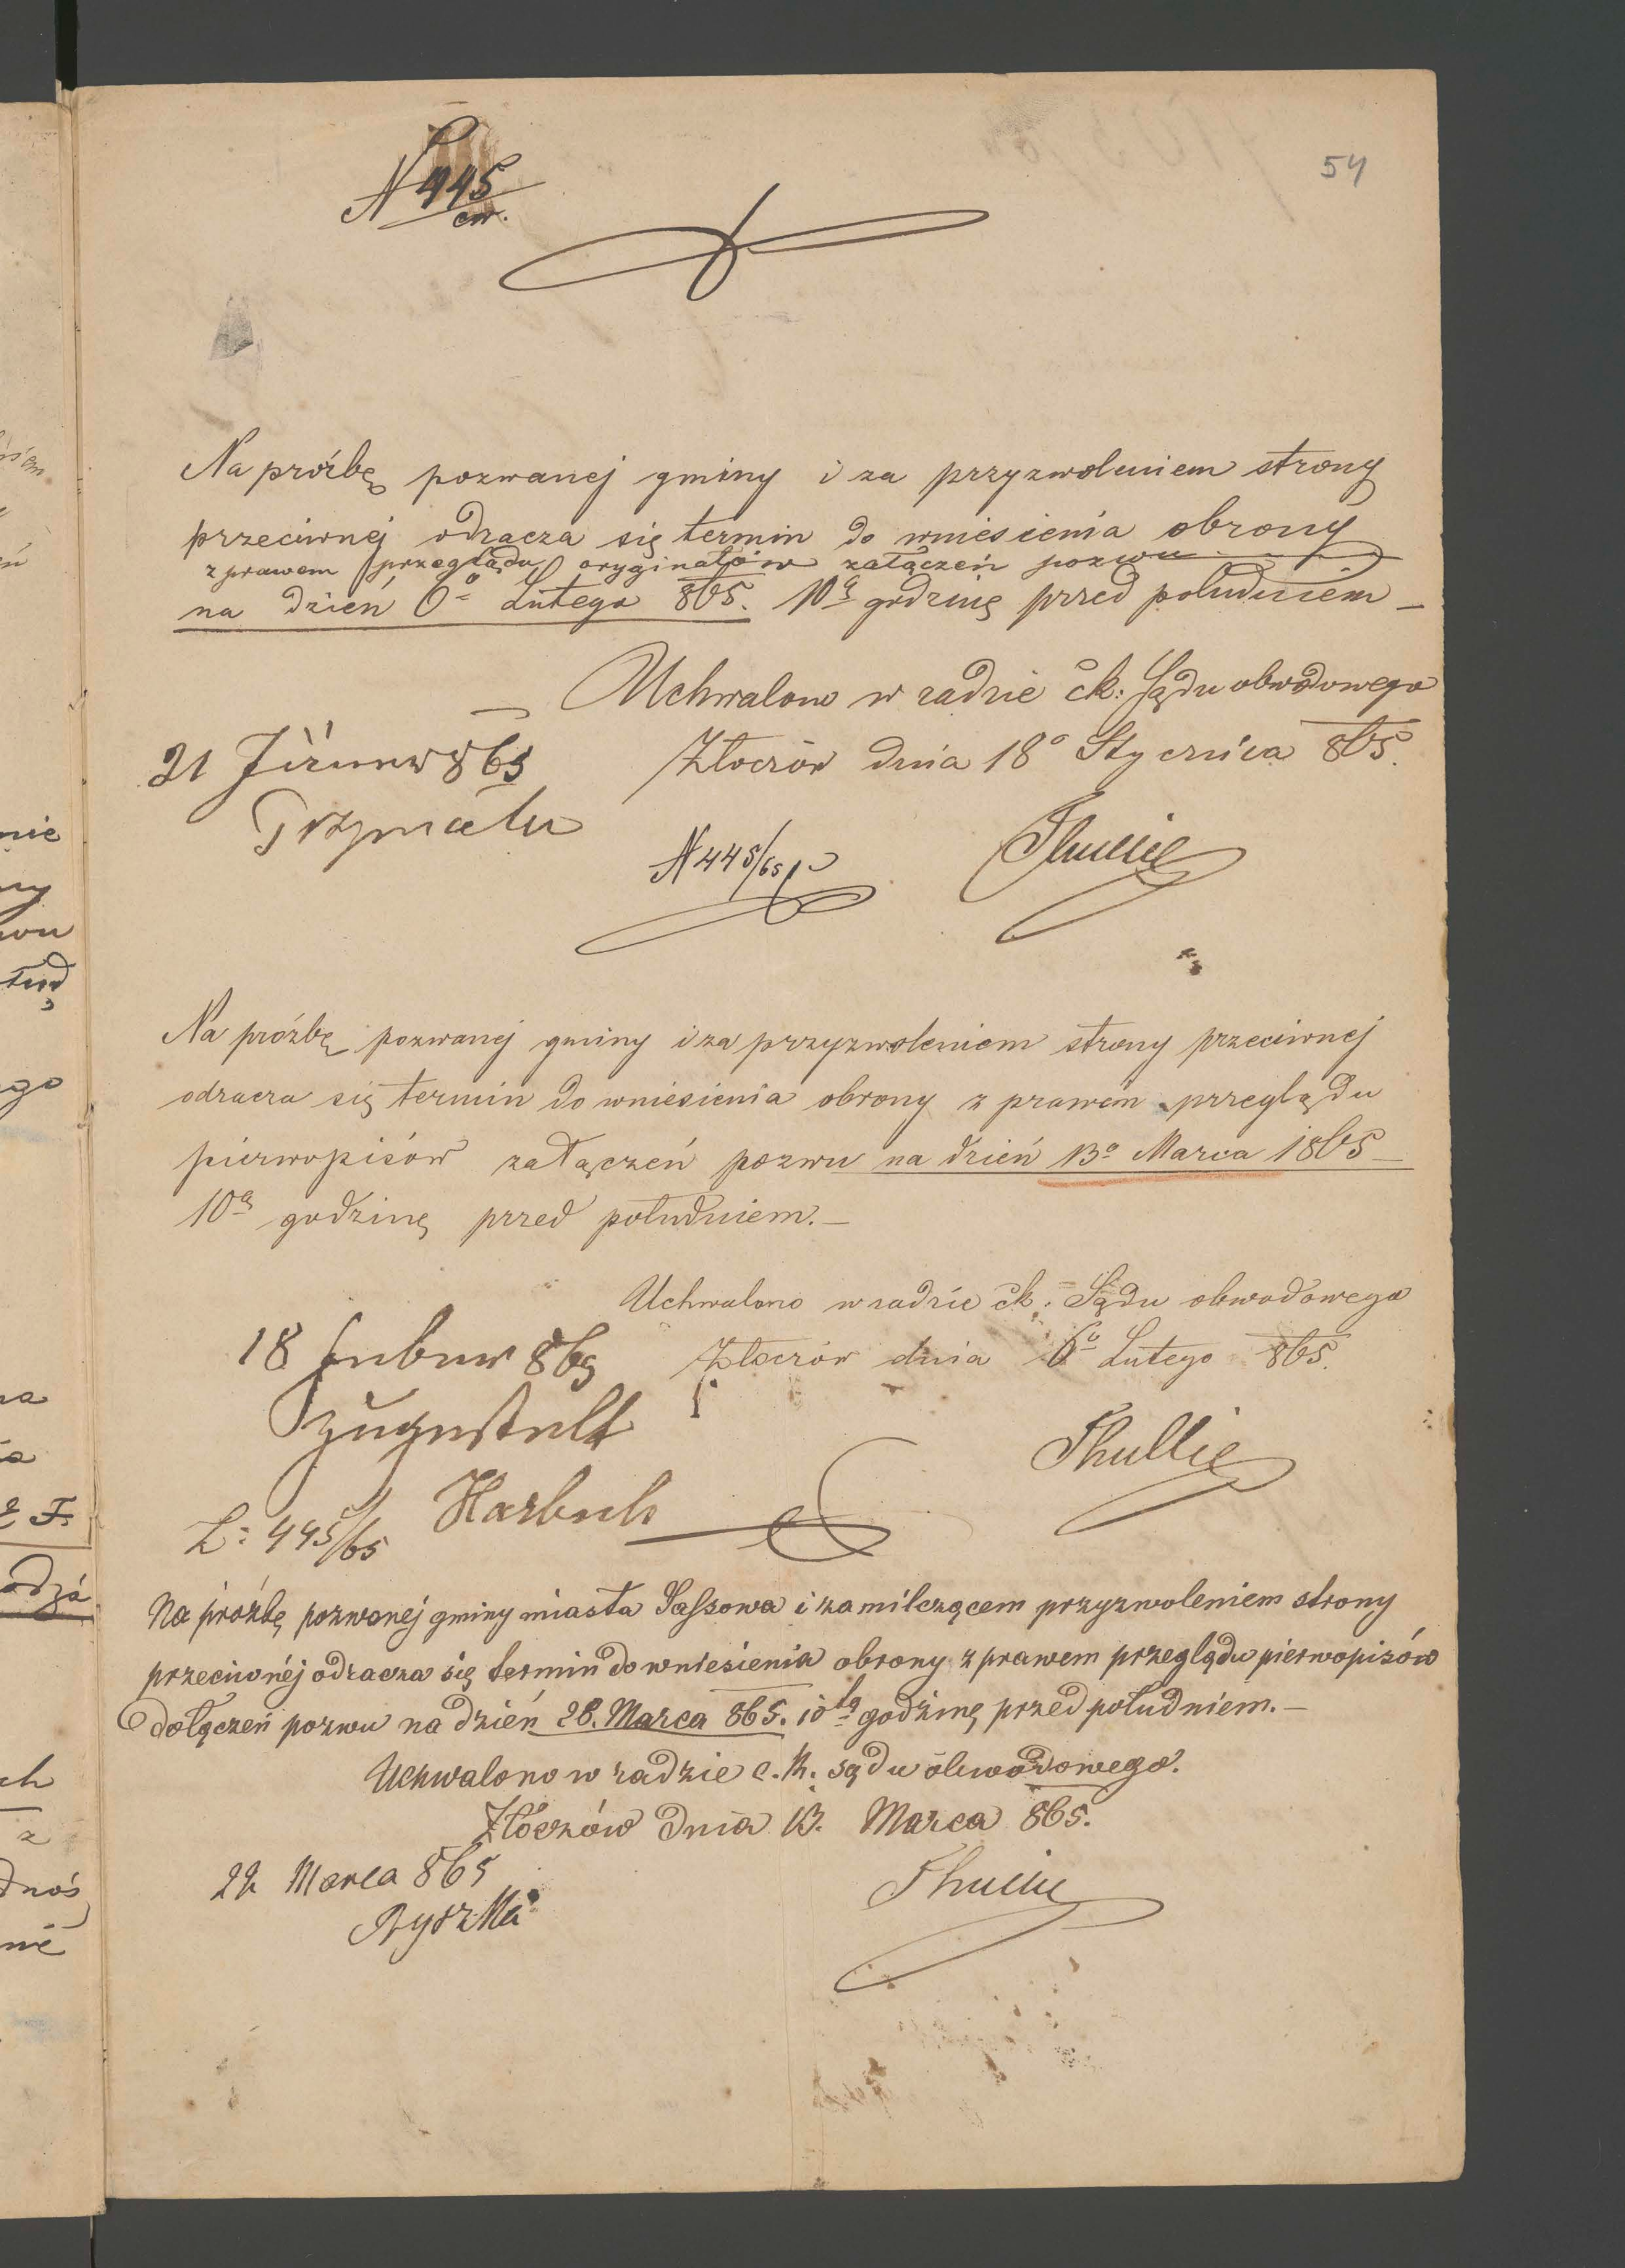 54
N 445
cw.
Na prośbę pozwanej gminy i za przyzwoleniem strony
przeciwnej odracza się termin do wniesienia obrony
z prawem przeglądu oryginałów załączeń pozwu
na dzień 6º Lutego 865. 10ą godzinę przed południem –
Uchwalono w radzie ck: Sądu obwodowego
Złoczów dnia 18º Stycznia 865.
21 Jänner 865
N 445/65
Thullie
Na prośbę pozwanej gminy i za przyzwoleniem strony przeciwnej
odracza się termin do wniesienia obrony z prawem przeglądu
pierwopisów załączeń pozwu na dzień 13º Marca 1865 –
10ą godzinę przed południem. –
Uchwalono w radzie ck: Sądu obwodowego
Złoczów dnia 6º Lutego 865.
18 Februar 865
Thullie
L: 445/65
Na prośbę pozwanej gminy miasta Sassowa i za milczącem przyzwoleniem strony
przeciwnéj odracza się termin do wniesienia obrony z prawem przeglądu pierwopisów
dołączeń pozwu na dzień 28. Marca 865. 10tą godzinę przed południem. –
Uchwalono w radzie c. k. sądu obwodowego.
Złoczów dnia 13. Marca 865.
Marca 865
Thullie